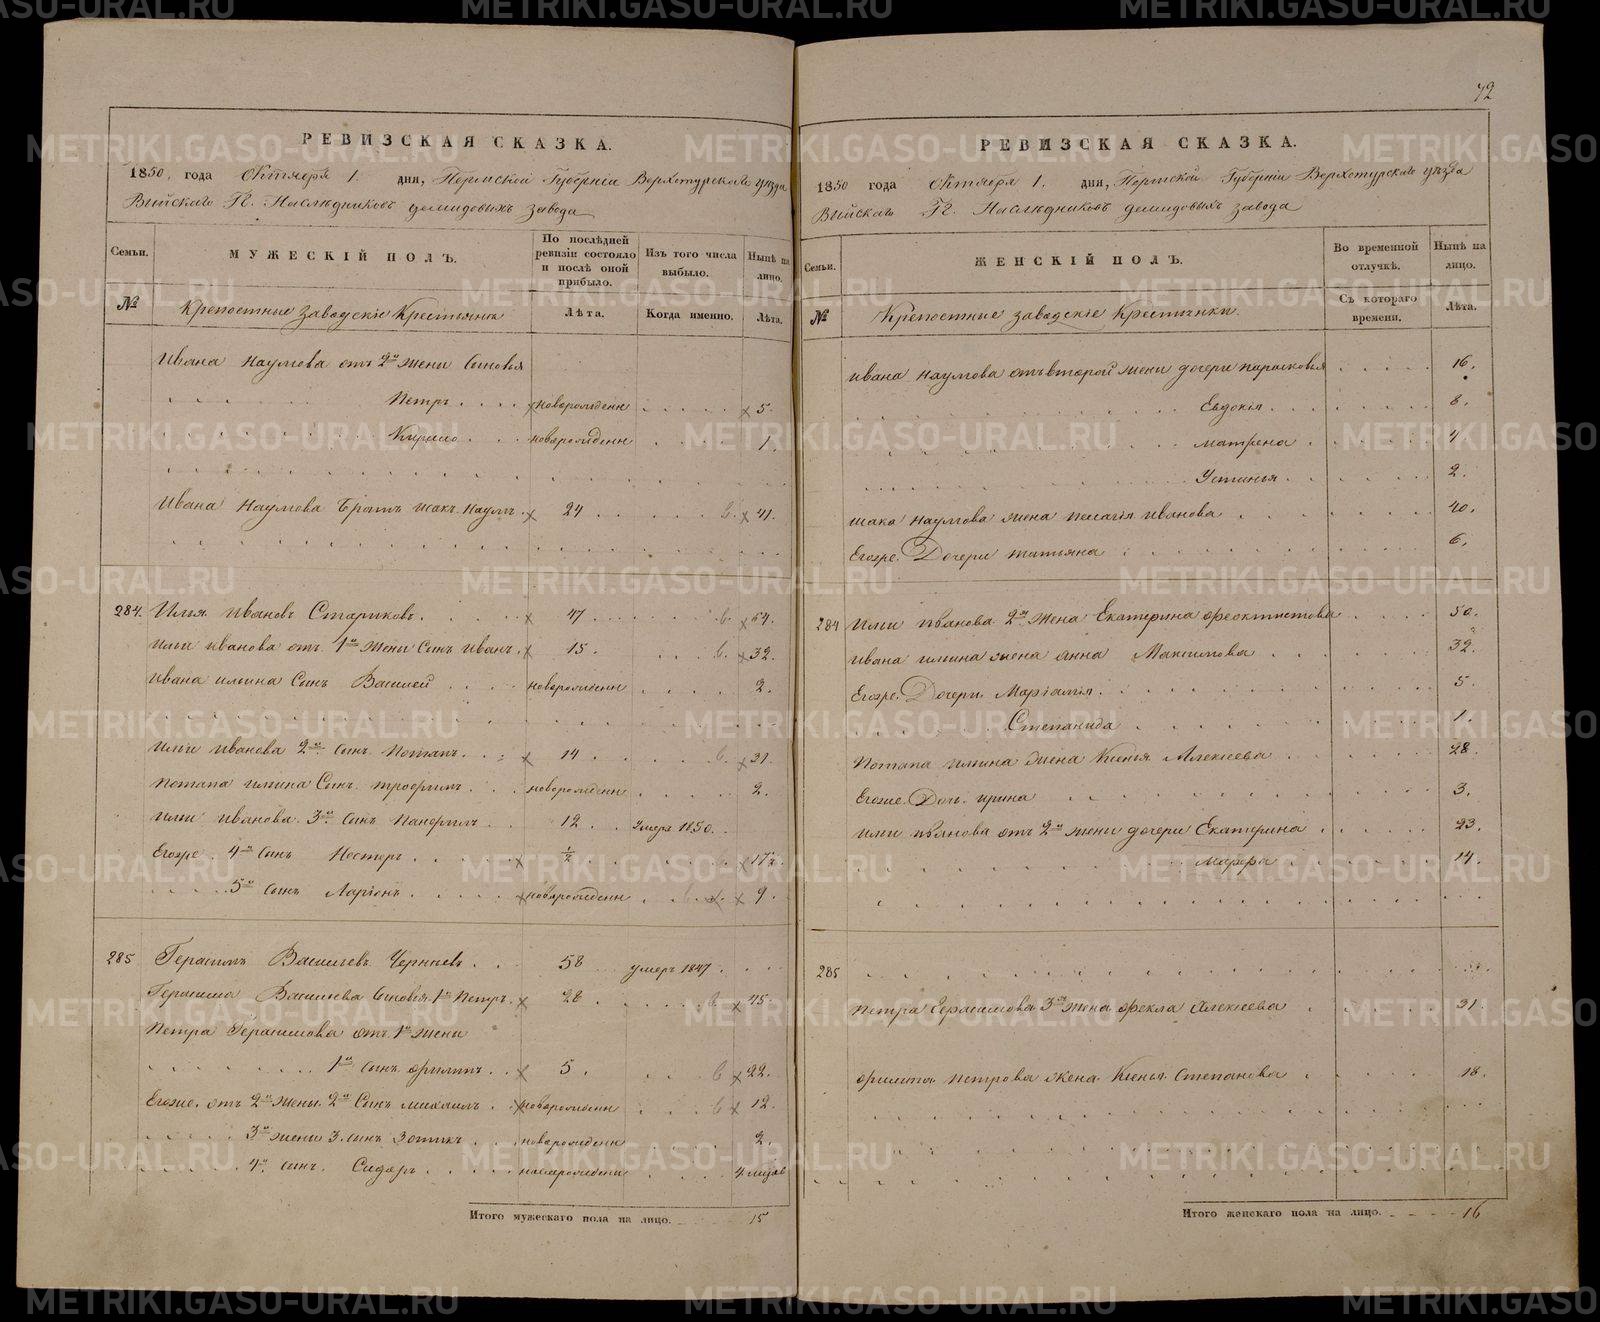 РЕВИЗСКАЯ СКАЗКА.
1850, года Октября 1. дня, Пермской Губернiи Верхотурскаго уѣзда
Выйскаго Гг. Наслѣдниковъ Демидовыхъ завода
Семьи.
МУЖЕСКIЙ ПОЛЪ.
По послѣдней ревизiи состояло и послѣ оной прибыло.
Изъ того числа выбыло.
Нынѣ на лицо.
№
Крепостные заводскiе Крестьяне
Лѣта.
Когда именно.
Лѣта.
Ивана Наумова отъ 2й жены Сыновья
Петръ новорожденн 5.
Кирило новорожденн 1.
Ивана Наумова Братъ Исакъ Наумъ 24 41.
284. Илья Ивановъ Стариковъ 47 64.
Ильи Иванова отъ 1й жены Сынъ Иванъ 15. 32.
Ивана Ильина Сынъ Василей новорожденн 2.
Ильи Иванова 2й Сынъ Потапъ 14 31.
Потапа Ильина Сынъ Трофимъ новорожденн 2.
Ильи Иванова 3й Сынъ Панфилъ 12 Умеръ 1850.
Егоже 4й Сынъ Нестеръ ½ 17½
5й Сынъ Ларiонъ новорожденн 9.
285 Герасимъ Васильевъ Черныевъ 58 умеръ 1847
Герасима Васильева Сыновья 1й Петръ 28 45.
Петра Герасимова отъ 1й жены
1й сынъ Филипъ 5. 22.
Егоже отъ 2й жены 2й Сынъ Михаилъ новорожденн 12.
3й жены 3. сынъ Зотикъ новорожденн 2.
4й сынъ Сидоръ новорожденн 4 месяцов
Итого мужескаго пола на лицо. 15
72
РЕВИЗСКАЯ СКАЗКА.
1850 года Октября 1. дня, Пермской Губернiи Верхотурскаго уѣзда
Выйскаго Гг. Наслѣдниковъ Демидовыхъ завода
Семьи.
ЖЕНСКIЙ ПОЛЪ.
Во временной отлучкѣ.
Нынѣ на лицо.
№
Крепостные заводскiе Крестьянки.
Съ котораго времени.
Лѣта.
Ивана Наумова отъ второй жены дочери Парасковья 16.
Евдокiя 8.
Матрена 4
Устинья 2.
Исака Наумова жена Пелагiя Иванова 40.
Егоже Дочери Татьяна 6.
284 Ильи Иванова 2я жена Екатерина Феоктистова 50.
Ивана Ильина жена Анна Максимова 32.
Егоже Дочери Марiамiя 5.
Степанида 1.
Потапа Ильина жена Ксенья Алексеева 28.
Егоже Дочь Ирина 3.
Ильи Иванова отъ 2й жены дочери Екатерина 23.
Марфа 14.
285
Петра Герасимова 3я жена Фекла Алексеева 31.
Филипа Петрова жена Ксенья Степанова 18.
Итого женскаго пола на лицо. 16
METRIKI.GASO-URAL.RU